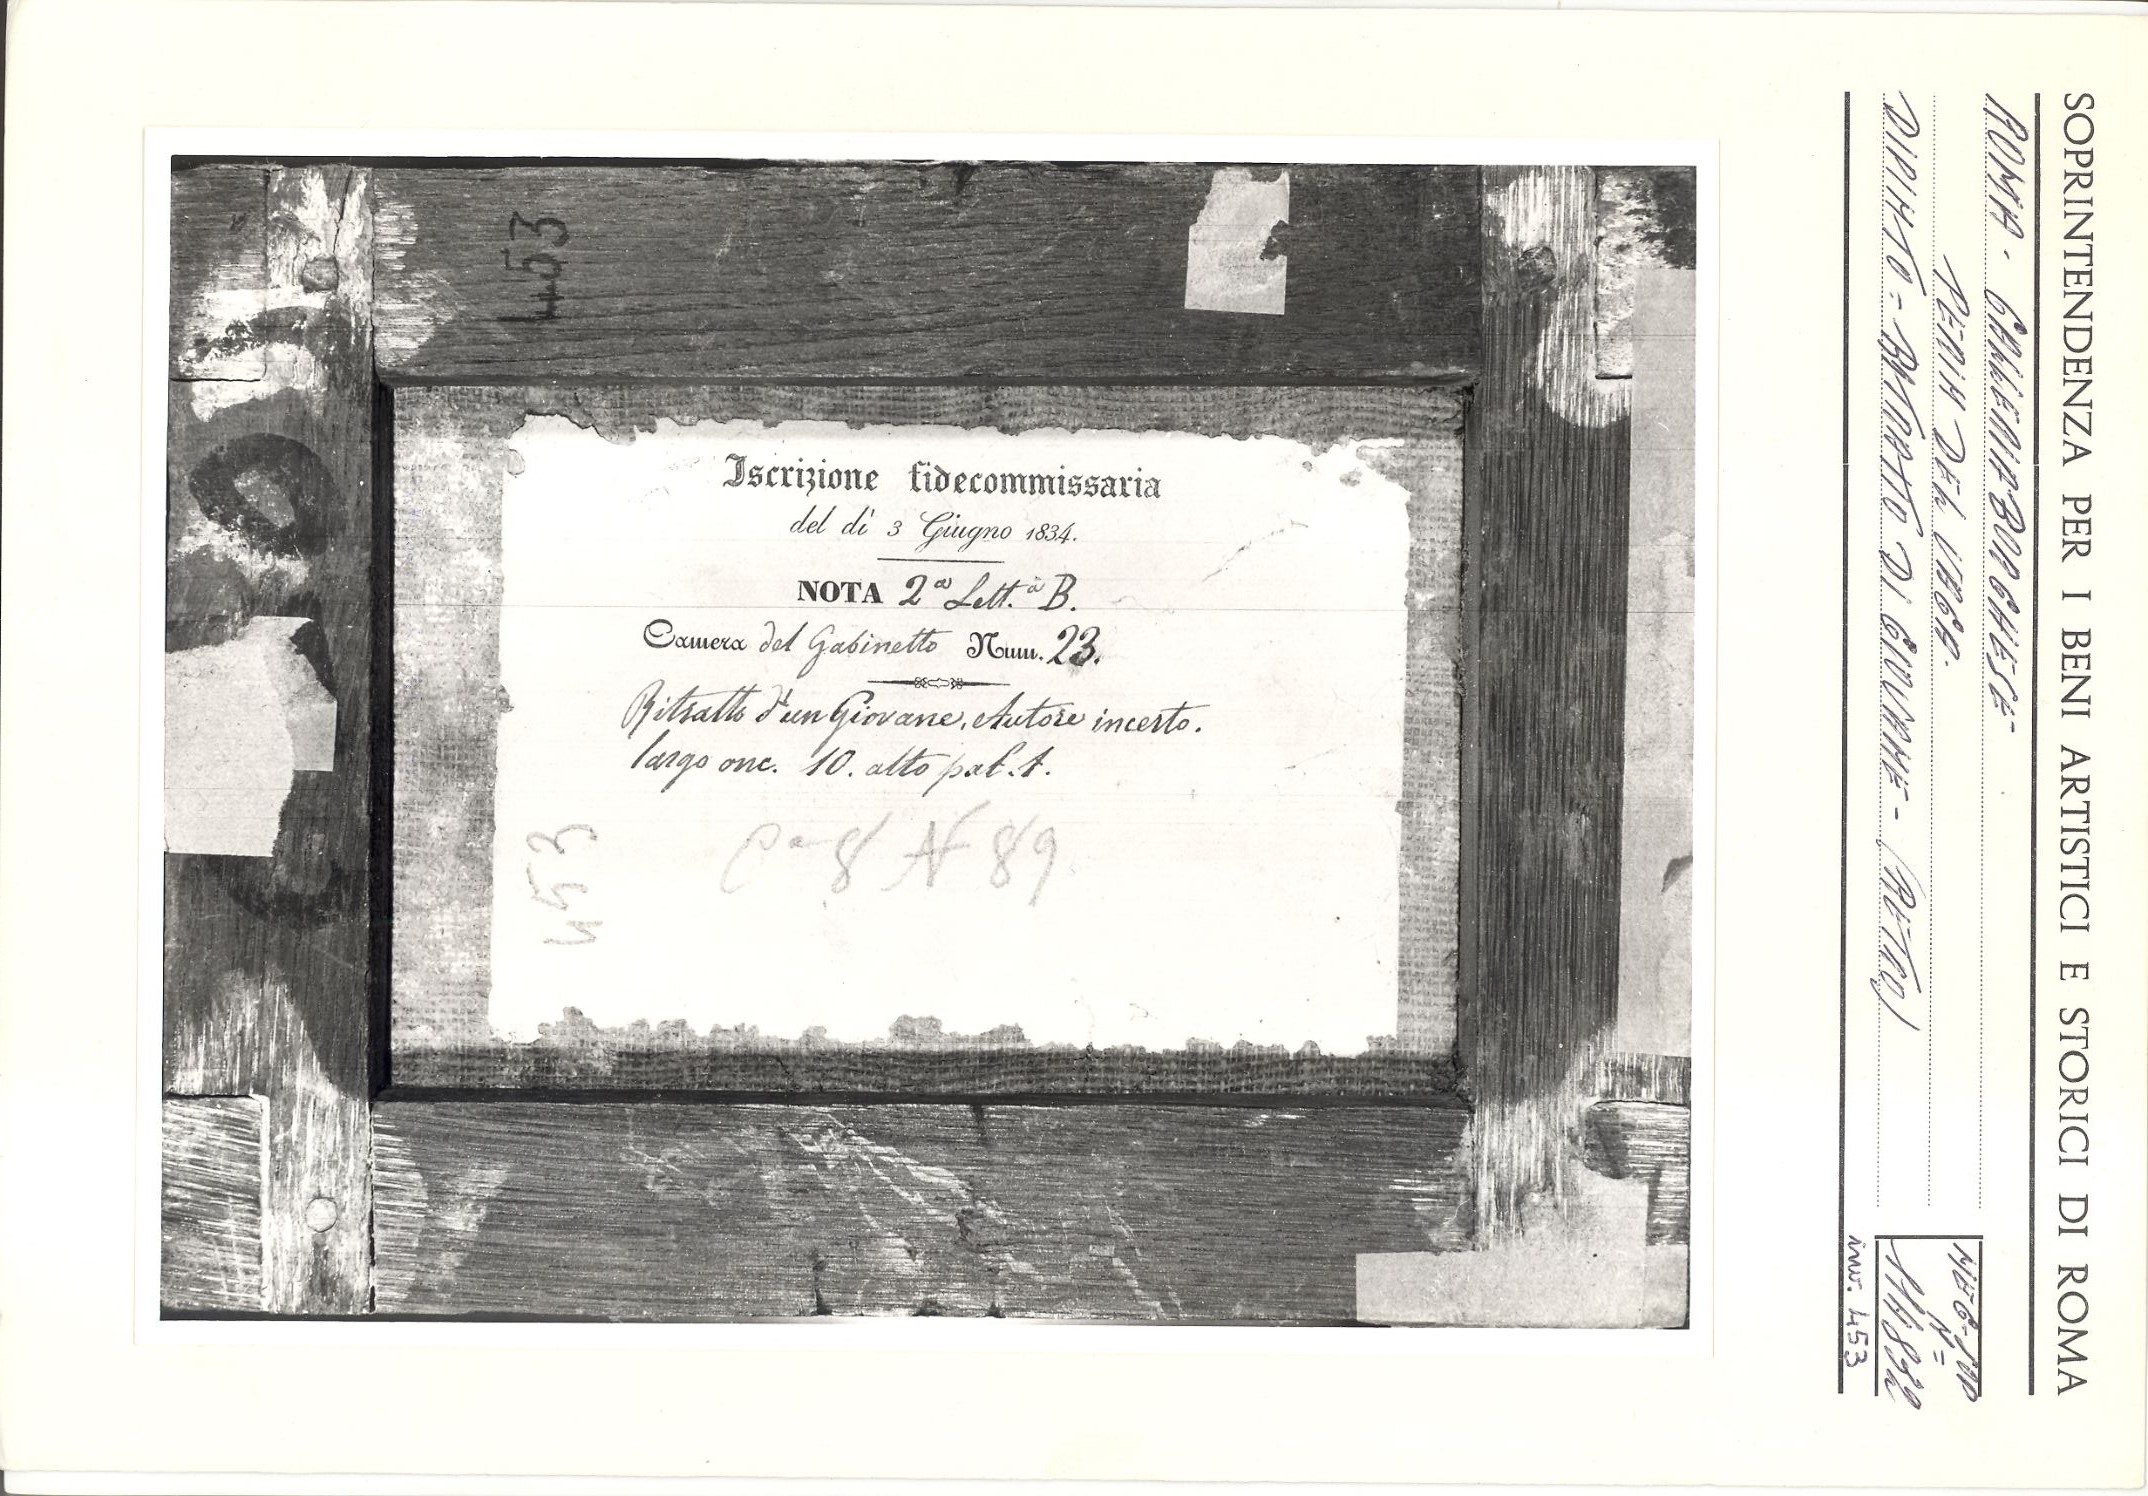 SOPRINTENDENZA PER I BENI ARTISTICI E STORICI DI ROMA
ROMA - GALLERIA BORGHESE -
PERIN DEL VAGA.
DIPINTO = RITRATTO DI GIOVANE - (RETRO)
NEG. SBAS
N=
inv. 453
453
Iscrizione fidecommissaria
del dì 3 Giugno 1834.
NOTA 2ª Lett.ª B.
Camera del Gabinetto Num. 23.
Ritratto d'un Giovane, Autore incerto.
largo onc. 10. alto pal. 1.
Cª 8 N 89
453